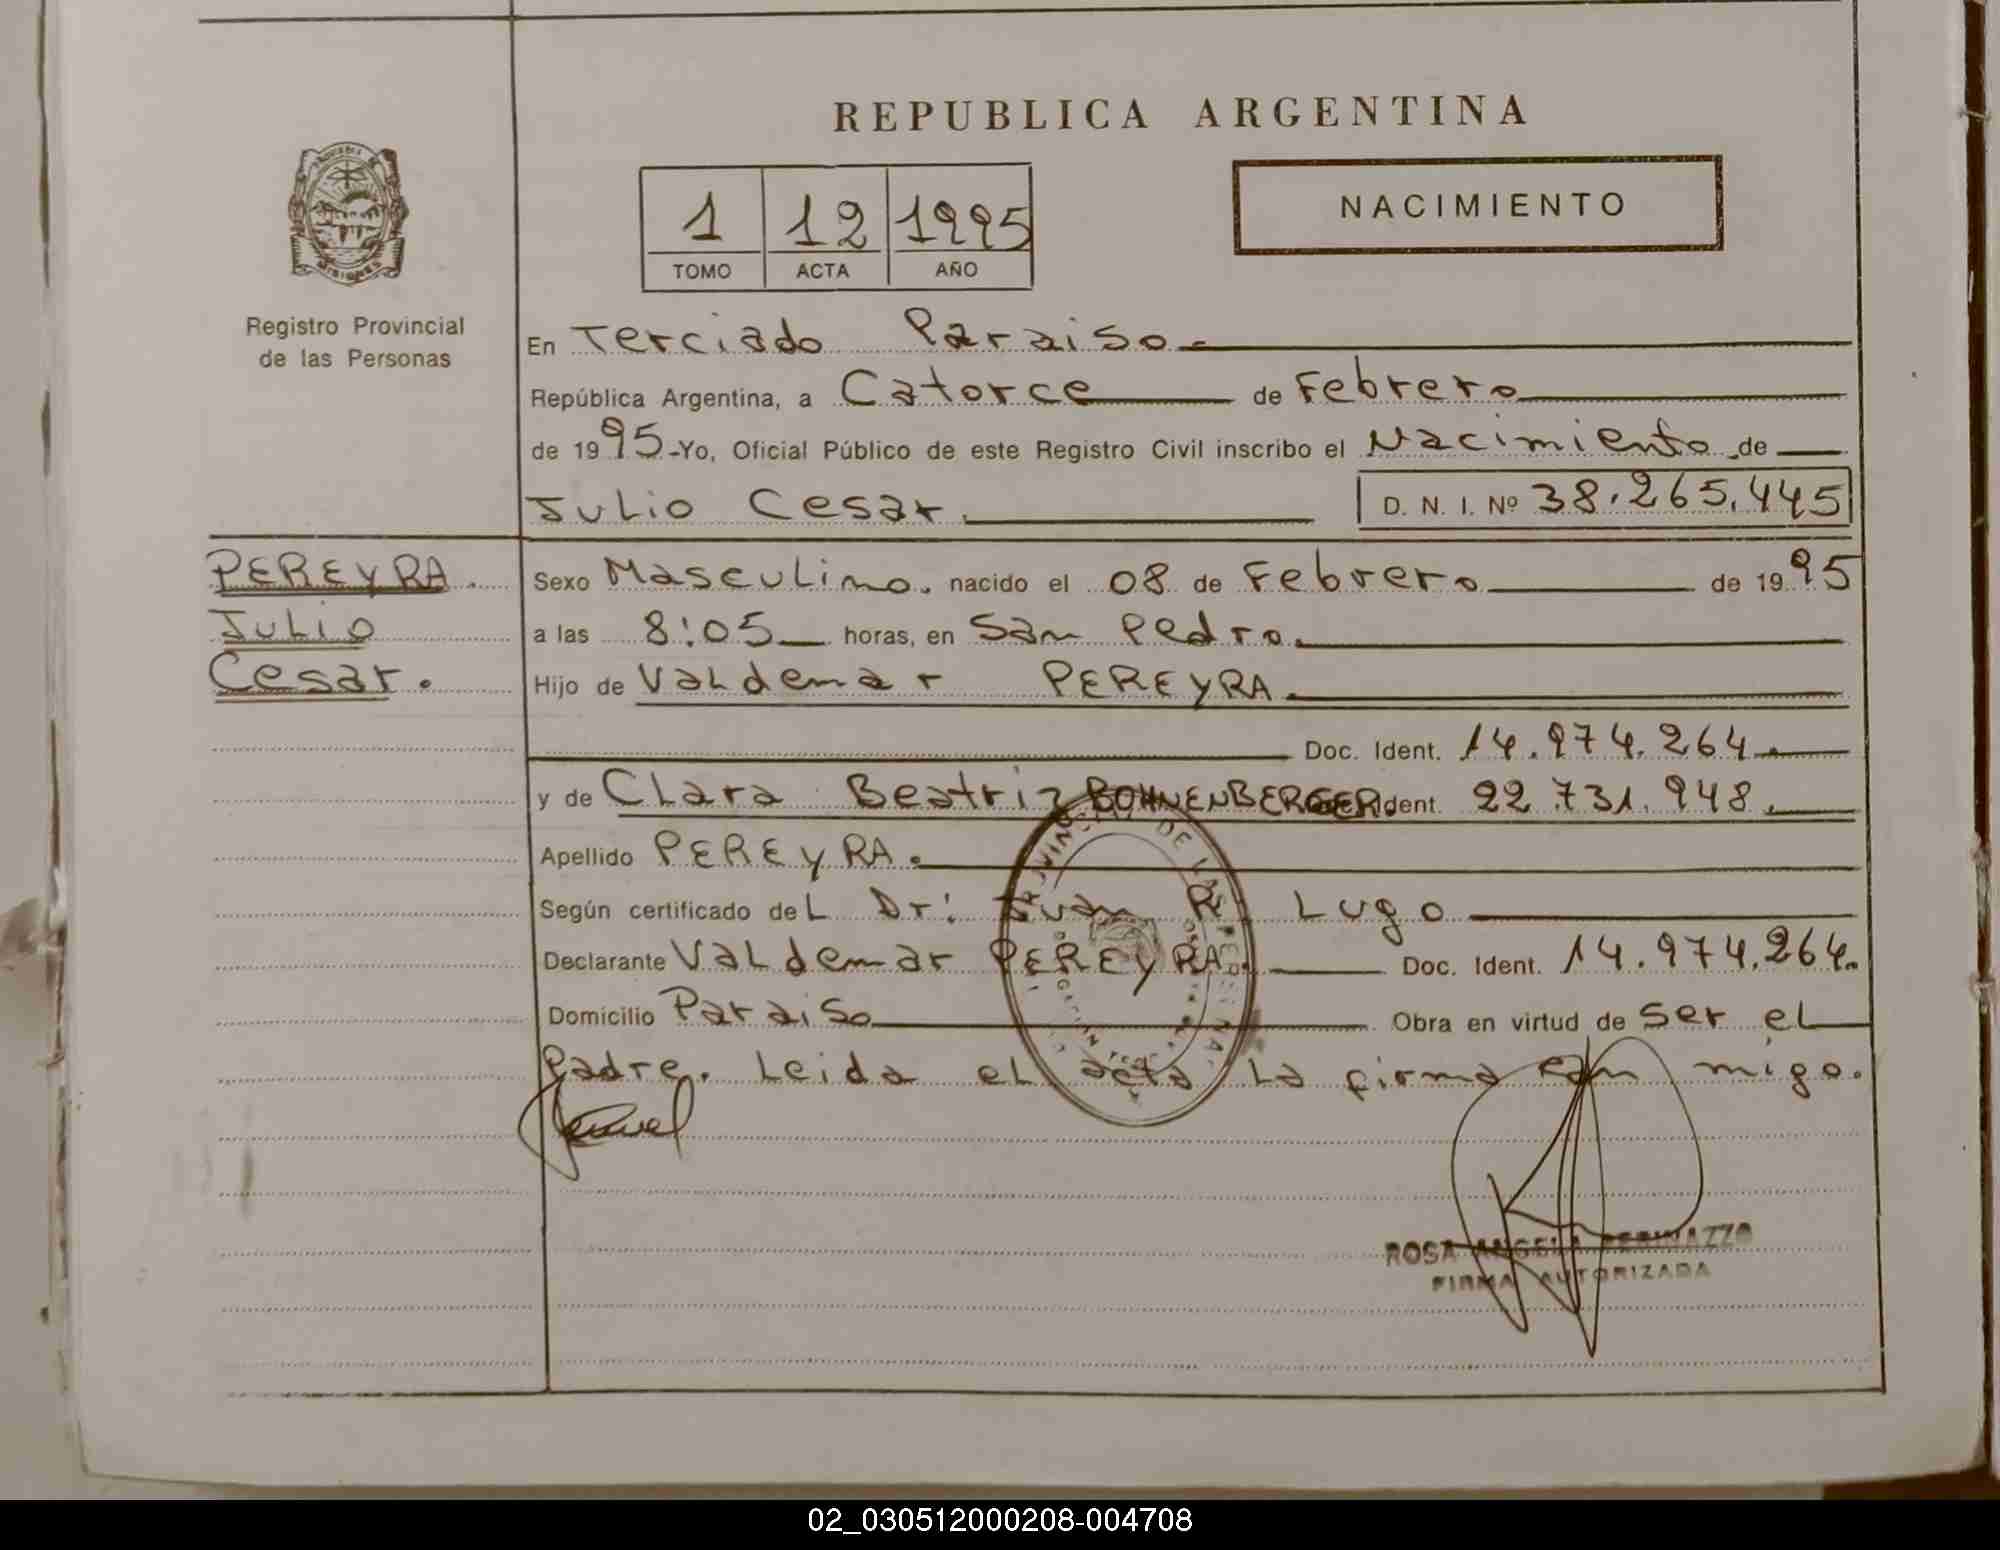 REPUBLICA ARGENTINA
1 12 1995
TOMO ACTA AÑO
NACIMIENTO
MISIONES
Registro Provincial
de las Personas
En Terciado Paraiso.
República Argentina, a Catorce de Febrero
de 1995.-Yo, Oficial Público de este Registro Civil inscribo el Nacimiento de
Julio Cesar. D. N. I. Nº 38.265.445
PEREYRA
Julio
Cesar.
Sexo Masculino. nacido el 08 de Febrero de 1995
a las 8:05 horas, en San Pedro.
Hijo de Valdemar PEREYRA.
Doc. Ident. 14.974.264.
y de Clara Beatriz BOHNENBERGER Ident. 22.731.948.
Apellido PEREYRA.
Según certificado del Dr: Juan R. Lugo
Declarante Valdemar PEREYRA. Doc. Ident. 14.974.264.
Domicilio Paraiso Obra en virtud de ser el
Padre. Leida el acta la firma con migo.
ROSA ANGELA
FIRMA AUTORIZADA
02_030512000208-004708